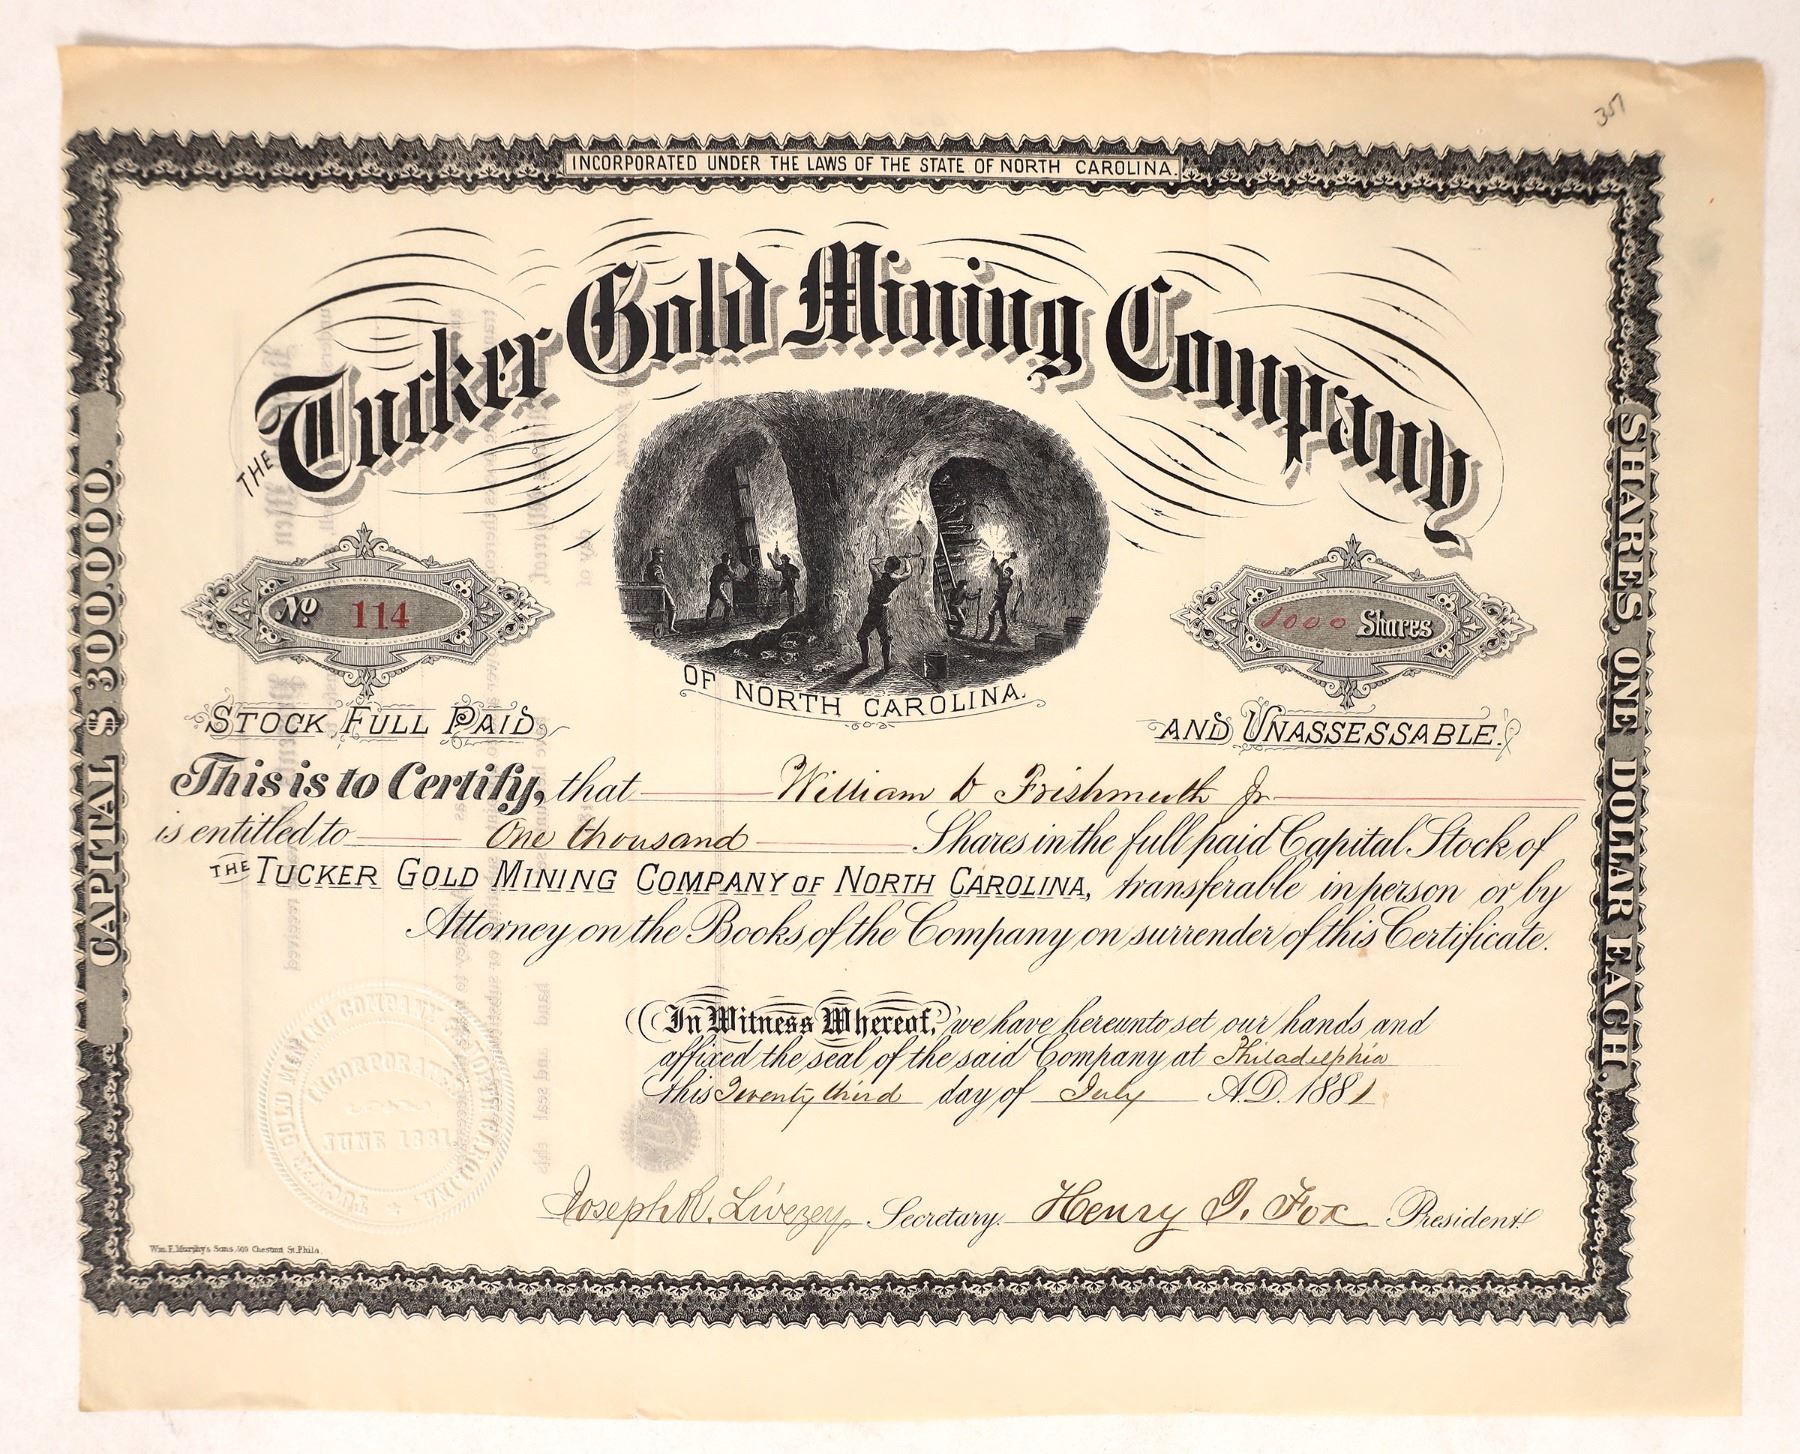 351
INCORPORATED UNDER THE LAWS OF THE STATE OF NORTH CAROLINA.
THE Tucker Gold Mining Company
OF NORTH CAROLINA.
No 114
1000 Shares
STOCK FULL PAID
AND UNASSESSABLE.
This is to Certify, that William D Frishmuth Jr
is entitled to One thousand Shares in the full paid Capital Stock of
THE TUCKER GOLD MINING COMPANY OF NORTH CAROLINA, transferable in person or by
Attorney on the Books of the Company on surrender of this Certificate.
In Witness Whereof, we have hereunto set our hands and
affixed the seal of the said Company at Philadelphia
this Twenty third day of July A.D. 1881
Joseph R. Livezey Secretary. Henry I. Fox President
TUCKER GOLD MINING COMPANY OF NORTH CAROLINA.
INCORPORATED
JUNE 1881
Wm. F. Murphy's Sons, 509 Chestnut St. Phila.
CAPITAL $300.000.
SHARES, ONE DOLLAR EACH.